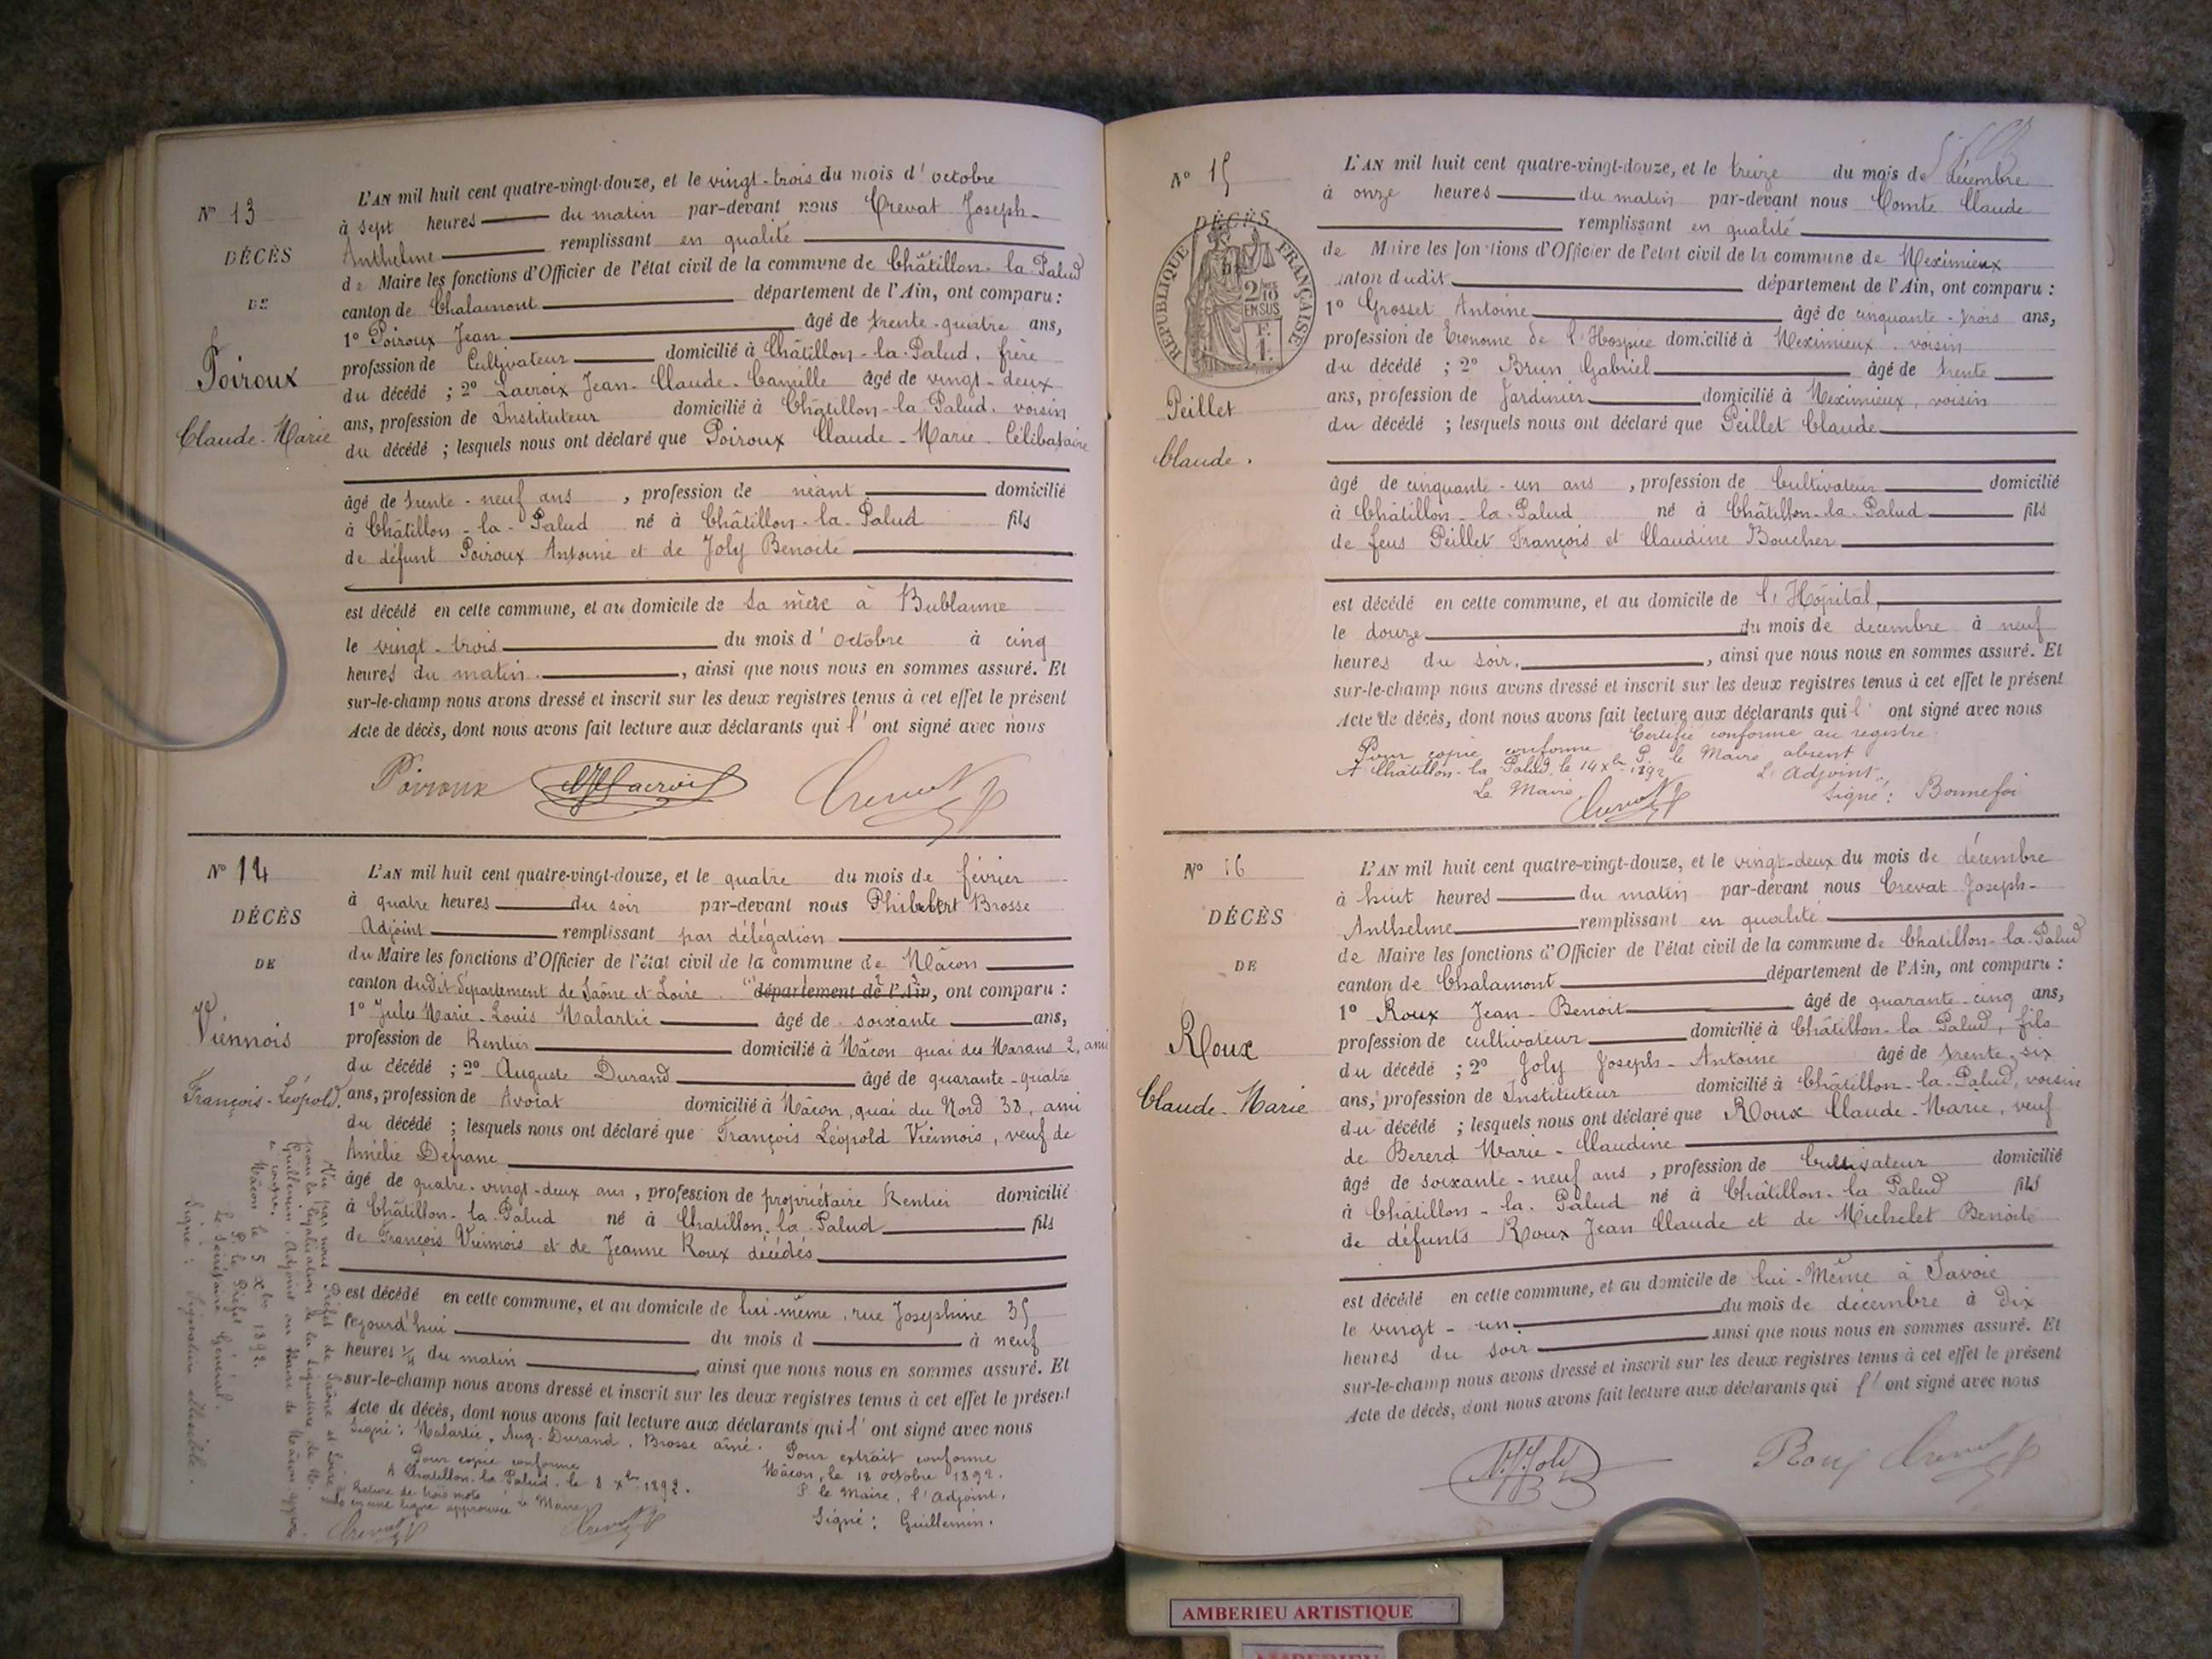 N° 13
DÉCÈS
DE
Poiroux
Claude-Marie
L'AN mil huit cent quatre-vingt-douze, et le vingt-trois du mois d'octobre
à sept heures du matin par-devant nous Crevat Joseph-
Anthelme remplissant en qualité
de Maire les fonctions d'Officier de l'état civil de la commune de Châtillon-la-Palud
canton de Chalamont département de l'Ain, ont comparu :
1° Poiroux Jean âgé de trente-quatre ans,
profession de Cultivateur domicilié à Châtillon-la-Palud, frère
du décédé ; 2° Lacroix Jean-Claude-Camille âgé de vingt-deux
ans, profession de Instituteur domicilié à Châtillon-la-Palud, voisin
du décédé ; lesquels nous ont déclaré que Poiroux Claude-Marie, Célibataire
âgé de trente-neuf ans, profession de néant domicilié
à Châtillon-la-Palud né à Châtillon-la-Palud fils
de défunt Poiroux Antoine et de Joly Benoite
est décédé en cette commune, et au domicile de sa mère à Bublanne
le vingt-trois du mois d'octobre à cinq
heures du matin, ainsi que nous nous en sommes assuré. Et
sur-le-champ nous avons dressé et inscrit sur les deux registres tenus à cet effet le présent
Acte de décès, dont nous avons fait lecture aux déclarants qui l'ont signé avec nous
Poiroux Lacroix Crevat
N° 14
DÉCÈS
DE
Viennois
François-Léopold.
L'AN mil huit cent quatre-vingt-douze, et le quatre du mois de février
à quatre heures du soir par-devant nous Philibert Brosse
Adjoint remplissant par délégation
du Maire les fonctions d'Officier de l'état civil de la commune de Mâcon
canton dudit département de Saône et Loire. département de l'Ain, ont comparu :
1° Jules Marie-Louis Malartie âgé de soixante ans,
profession de Rentier domicilié à Mâcon quai des Marans 2, ami
du décédé ; 2° Auguste Durand âgé de quarante-quatre
ans, profession de Avocat domicilié à Mâcon, quai du Nord 38, ami
du décédé ; lesquels nous ont déclaré que François Léopold Viennois, veuf de
Amélie Defranc
âgé de quatre-vingt-deux ans, profession de propriétaire Rentier domicilié
à Châtillon-la-Palud né à Chatillon-la-Palud fils
de François Viennois et de Jeanne Roux décédés
est décédé en cette commune, et au domicile de lui-même, rue Joséphine 35
Cejourd'hui du mois d à neuf
heures 1/4 du matin, ainsi que nous nous en sommes assuré. Et
sur-le-champ nous avons dressé et inscrit sur les deux registres tenus à cet effet le présent
Acte de décès, dont nous avons fait lecture aux déclarants qui l'ont signé avec nous
Signé : Malartie, Aug. Durand, Brosse aîné.
Pour copie conforme
A Chatillon-la-Palud, le 8 Xbre 1892.
Le Maire
Rature de trois mots
en une ligne approuvée
Crevat Crevat
Pour extrait conforme
Mâcon, le 18 octobre 1892.
P. le Maire, l'Adjoint.
Signé : Guillemin.
Vu par nous Préfet de Saône et Loire
pour la légalisation de la signature de M.
Guillemin, Adjoint au Maire de Mâcon
Mâcon le 5 Xbre 1892.
P. le Préfet
Le Secrétaire Général.
Signé : Signature illisible.
N° 15
DÉCÈS
RÉPUBLIQUE FRANÇAISE
2/10 EN SUS
Peillet
Claude.
L'AN mil huit cent quatre-vingt-douze, et le treize du mois de décembre
à onze heures du matin par-devant nous Comte Claude
remplissant en qualité
de Maire les fonctions d'Officier de l'état civil de la commune de Meximieux
canton dudit département de l'Ain, ont comparu :
1° Grosset Antoine âgé de cinquante-trois ans,
profession de Econome de l'Hospice domicilié à Meximieux, voisin
du décédé ; 2° Brun Gabriel âgé de trente
ans, profession de Jardinier domicilié à Meximieux, voisin
du décédé ; lesquels nous ont déclaré que Peillet Claude
âgé de cinquante-un ans, profession de Cultivateur domicilié
à Châtillon-la-Palud né à Châtillon-la-Palud fils
de feus Peillet François et Claudine Boucher
est décédé en cette commune, et au domicile de l'Hôpital,
le douze du mois de décembre à neuf
heures du soir, ainsi que nous nous en sommes assuré. Et
sur-le-champ nous avons dressé et inscrit sur les deux registres tenus à cet effet le présent
Acte de décès, dont nous avons fait lecture aux déclarants qui l'ont signé avec nous
Certifié conforme au registre
P. le Maire absent
L'Adjoint.
Signé : Bonnefoi
Pour copie conforme
A Châtillon-la-Palud, le 14 Xbre 1892
Le Maire
Crevat
N° 16
DÉCÈS
DE
Roux
Claude-Marie
L'AN mil huit cent quatre-vingt-douze, et le vingt-deux du mois de décembre
à huit heures du matin par-devant nous Crevat Joseph-
Anthelme remplissant en qualité
de Maire les fonctions d'Officier de l'état civil de la commune de Chatillon-la-Palud
canton de Chalamont département de l'Ain, ont comparu :
1° Roux Jean-Benoit âgé de quarante-cinq ans,
profession de cultivateur domicilié à Châtillon-la Palud, fils
du décédé ; 2° Joly Joseph-Antoine âgé de trente-six
ans, profession de Instituteur domicilié à Châtillon-la-Palud, voisin
du décédé ; lesquels nous ont déclaré que Roux Claude-Marie, veuf
de Bererd Marie-Claudine
âgé de soixante-neuf ans, profession de Cultivateur domicilié
à Châtillon-la-Palud né à Châtillon-la Palud fils
de défunts Roux Jean Claude et de Michelet Benoite
est décédé en cette commune, et au domicile de lui-Même à Gavoie
le vingt-un du mois de décembre à dix
heures du soir ainsi que nous nous en sommes assuré. Et
sur-le-champ nous avons dressé et inscrit sur les deux registres tenus à cet effet le présent
Acte de décès, dont nous avons fait lecture aux déclarants qui l'ont signé avec nous
Joly Roux Crevat
AMBERIEU ARTISTIQUE
AMBERIEU